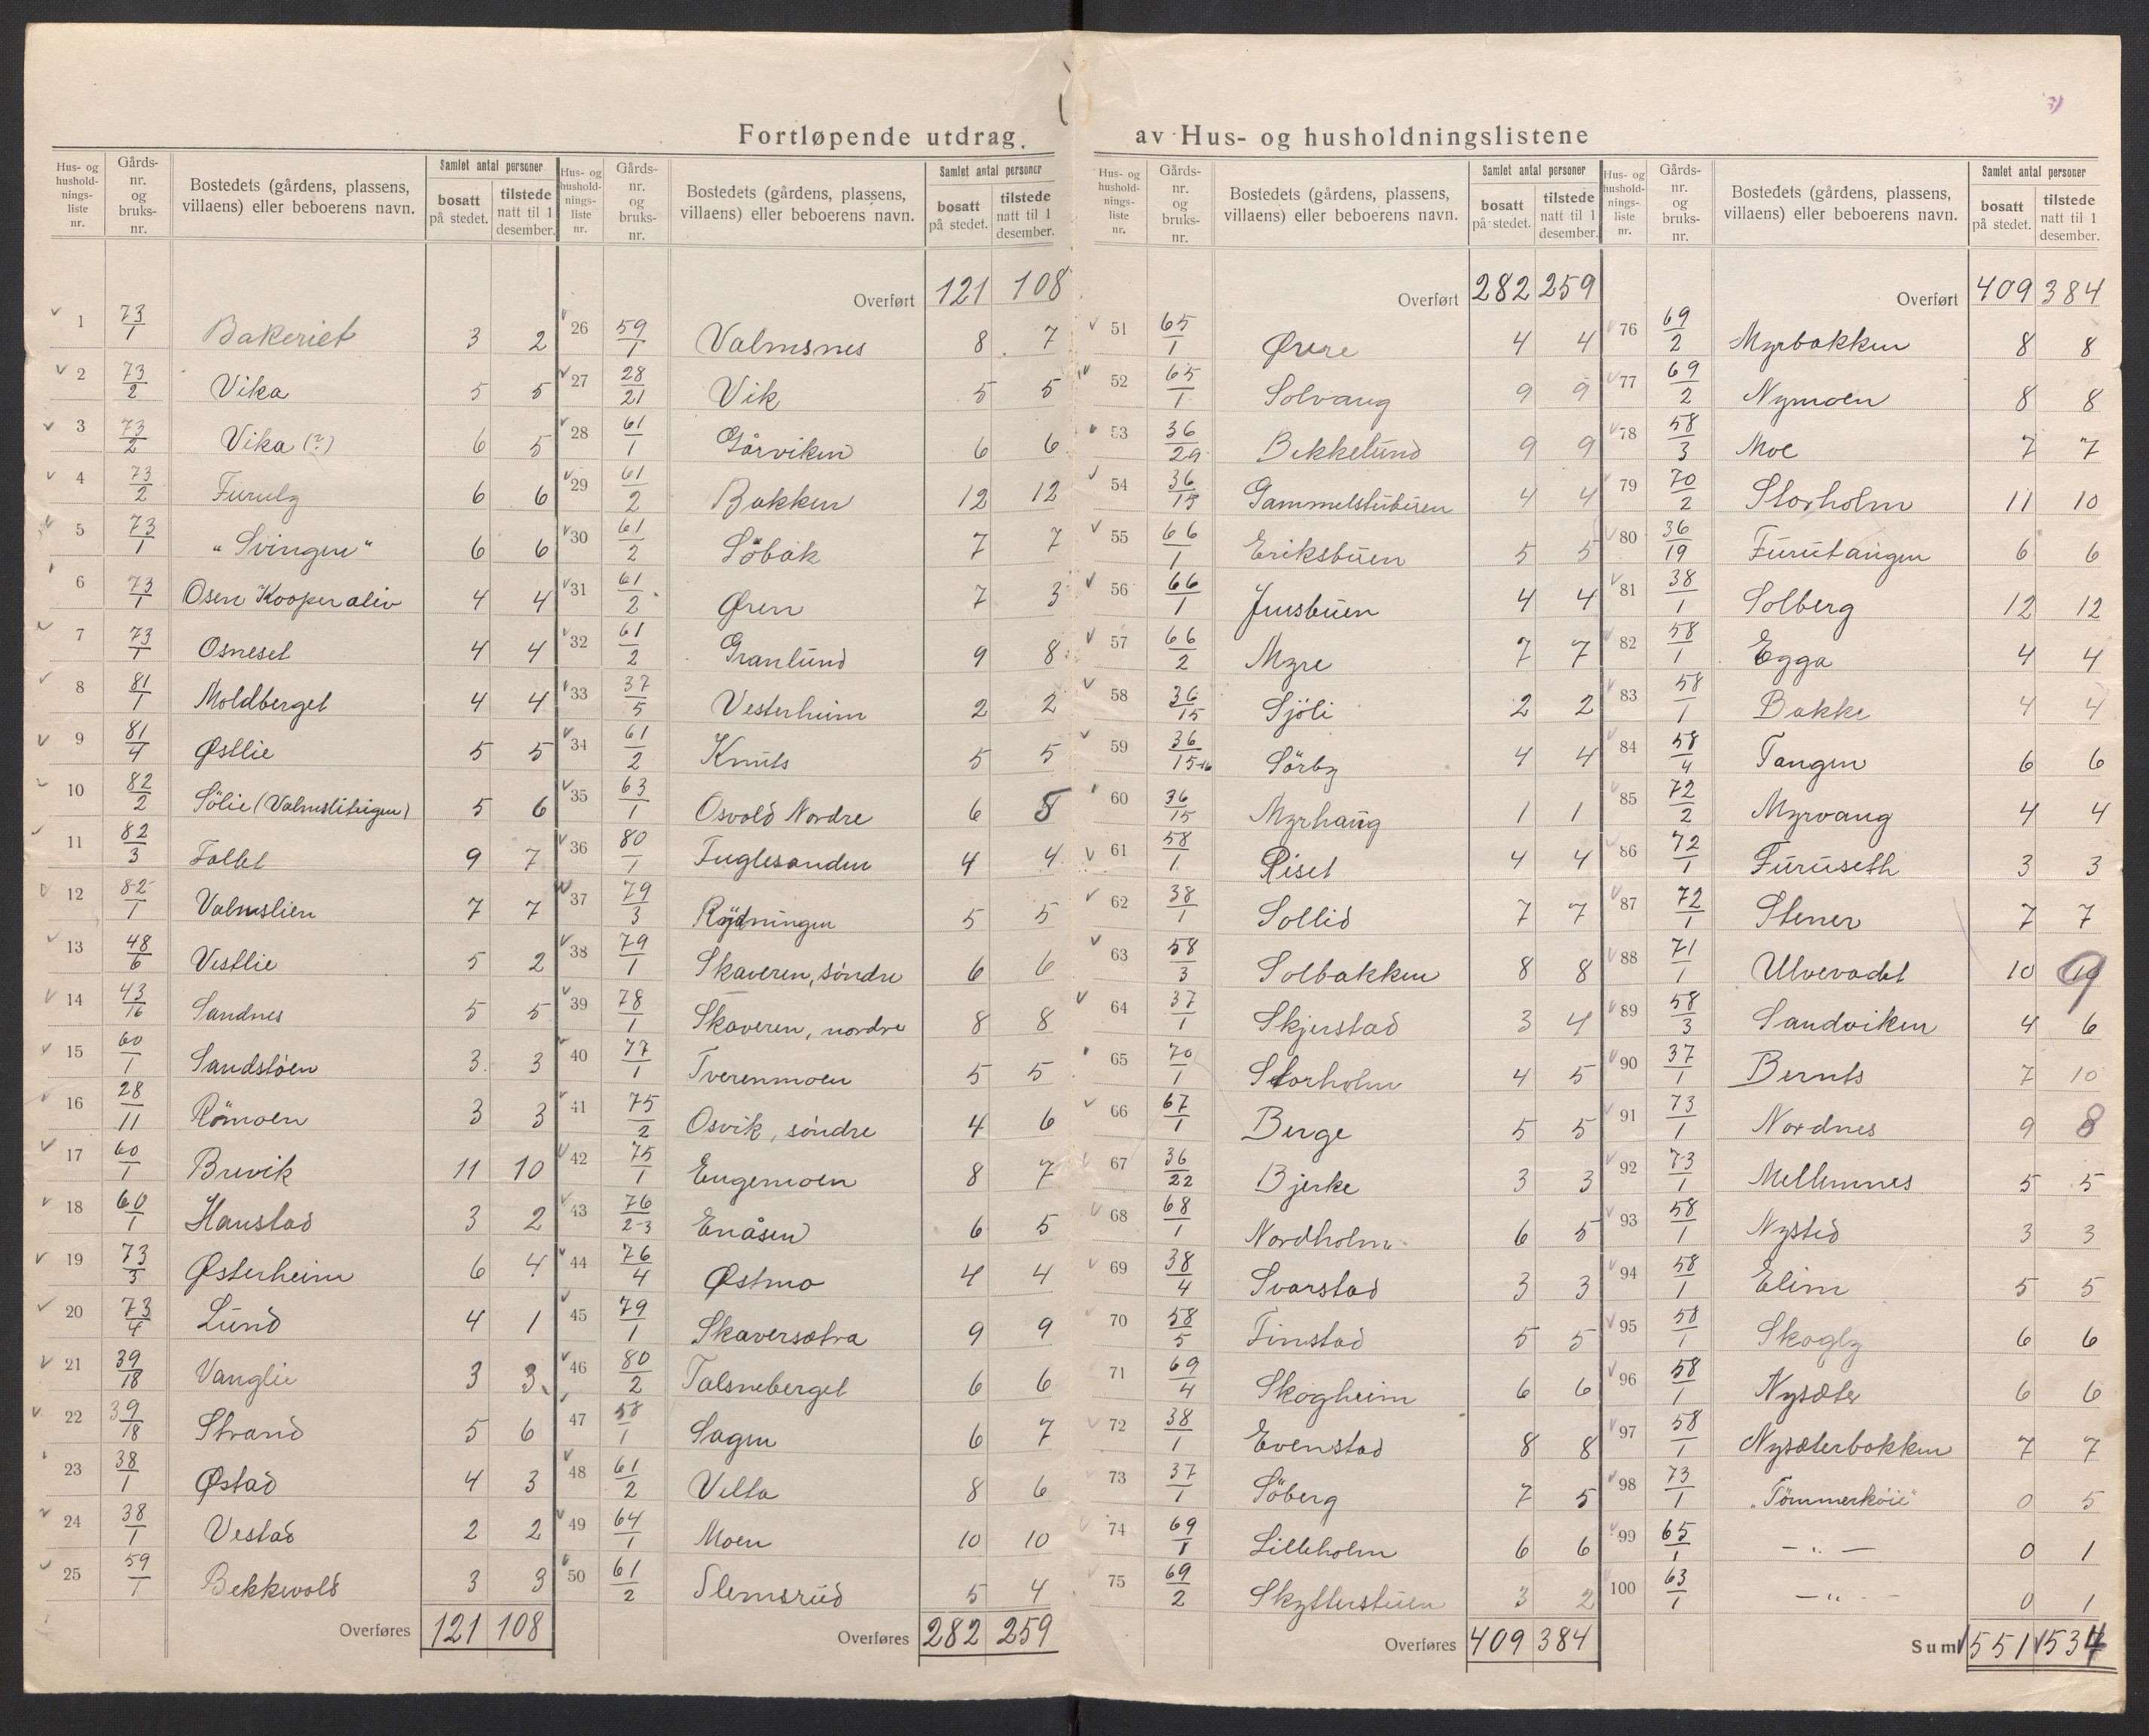 Fortløpende utdrag av Hus- og husholdningslistene
Hus- og husholdnings-liste nr. | Gårds-nr. og bruks-nr. | Bostedets (gårdens, plassens, villaens) eller beboerens navn. | Samlet antal personer | bosatt på stedet. | tilstede natt til 1 desember.
1 73/1 Bakeriet 3 2
2 73/2 Vika 5 5
3 73/2 Vika (?) 6 5
4 73/2 Furuly 6 6
5 73/1 "Svingen" 6 6
6 73/1 Osen Kooperativ 4 4
7 73/1 Osneset 4 4
8 81/1 Moldberget 4 4
9 81/4 Østlie 5 5
10 82/2 Sölie (Valmsliteigen) 5 6
11 82/3 Tallet 9 7
12 82/1 Valmslien 7 7
13 48/6 Vestlie 5 2
14 43/16 Sandnes 5 5
15 60/1 Sandstöen 3 3
16 28/11 Römoen 3 3
17 60/1 Brevik 11 10
18 60/1 Haustad 3 2
19 73/3 Østerheim 6 4
20 73/4 Lund 4 1
21 39/18 Vanglie 3 3
22 39/18 Strand 5 6
23 38/1 Østad 4 3
24 38/1 Vestad 2 2
25 59/1 Bekkevold 3 3
Overføres 121 108
Hus- og husholdnings-liste nr. | Gårds-nr. og bruks-nr. | Bostedets (gårdens, plassens, villaens) eller beboerens navn. | Samlet antal personer | bosatt på stedet. | tilstede natt til 1 desember.
Overført 121 108
26 59/1 Valmsnes 8 7
27 28/21 Vik 5 5
28 61/1 Gårviken 6 6
29 61/2 Bakken 12 12
30 61/2 Söbak 7 7
31 61/2 Øren 7 3
32 61/2 Granlund 9 8
33 37/5 Vesterheim 2 2
34 61/2 Knuts 5 5
35 63/1 Osvold Nordre 6 8
36 80/1 Fuglesanden 4 4
37 79/3 Rydningen 5 5
38 79/1 Skaveren, söndre 6 6
39 78/1 Skaveren, nordre 8 8
40 77/1 Tverenmoen 5 5
41 75/2 Osvik, söndre 4 6
42 75/1 Engemoen 8 7
43 76/2-3 Enåsen 6 5
44 76/4 Østmo 4 4
45 79/1 Skaversætra 9 9
46 80/2 Talsneberget 6 6
47 58/1 Sagen 6 7
48 61/2 Velta 8 6
49 64/1 Moen 10 10
50 61/2 Slemsrud 5 4
Overføres 282 259
Hus- og husholdnings-liste nr. | Gårds-nr. og bruks-nr. | Bostedets (gårdens, plassens, villaens) eller beboerens navn. | Samlet antal personer | bosatt på stedet. | tilstede natt til 1 desember.
Overført 282 259
51 65/1 Øvre 4 4
52 65/1 Solvang 9 9
53 36/29 Bekkelund 9 9
54 36/15 Gammelstubuen 4 4
55 66/1 Eriksbuen 5 5
56 66/1 Jensbuen 4 4
57 66/2 Myre 7 7
58 36/15 Sjöli 2 2
59 36/15-16 Sörby 4 4
60 36/15 Myrhaug 1 1
61 58/1 Riset 4 4
62 38/1 Sollid 7 7
63 58/3 Solbakken 8 8
64 37/1 Skjerstad 3 4
65 70/1 Storholm 4 5
66 67/1 Berge 5 5
67 36/22 Bjerke 3 3
68 68/1 Nordholm 6 5
69 38/4 Svarstad 3 3
70 58/5 Finstad 5 5
71 69/4 Skogheim 6 6
72 38/1 Evenstad 8 8
73 37/1 Söberg 7 5
74 69/1 Lilleholm 6 6
75 69/2 Skytterstuen 3 2
Overføres 409 384
Hus- og husholdnings-liste nr. | Gårds-nr. og bruks-nr. | Bostedets (gårdens, plassens, villaens) eller beboerens navn. | Samlet antal personer | bosatt på stedet. | tilstede natt til 1 desember.
Overført 409 384
76 69/2 Myrbakken 8 8
77 69/2 Nymoen 8 8
78 58/3 Moe 7 7
79 70/2 Storholm 11 10
80 36/19 Furutangen 6 6
81 38/1 Solberg 12 12
82 58/1 Egga 4 4
83 58/1 Bakke 4 4
84 58/4 Tangen 6 6
85 72/2 Myrvang 4 4
86 72/1 Furuseth 3 3
87 72/1 Stener 7 7
88 71/1 Ulvevadet 10 9
89 58/3 Sandviken 4 6
90 37/1 Bernts 7 10
91 73/1 Nordnes 9 8
92 73/1 Mellemnes 5 5
93 58/1 Nysted 3 3
94 58/1 Elim 5 5
95 58/1 Skogly 6 6
96 58/1 Nysæter 6 6
97 58/1 Nysæterbakken 7 7
98 73/1 "Tömmerköie" 0 5
99 65/1 — " — 0 1
100 63/1 — " — 0 1
Sum 551 534